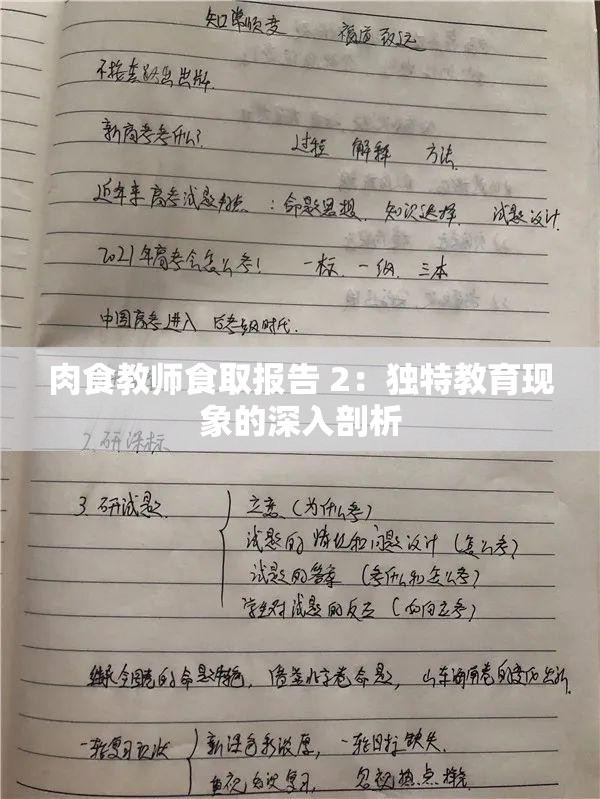 知常顺变 循道致远
不拘
新高考考什么? 过程 解释 方法.
近年来高考试题特点:命题思想、知识选择、试题设计.
2021年高考会怎么考! 一标、一纲、三本
中国高考进入 后考纲时代.
肉食教师食取报告 2：独特教育现
象的深入剖析
2.研课标
3.研试题
立意(为什么考)
试题的情境和问题设计(怎么考)
试题的答案(考什么和怎么考)
学生对试题的反应(如何应考)
继承全国卷的命题特色, 借鉴北京卷命题, 山东海南卷的
一轮复习现状
新课色彩浓厚, 一轮目标缺失.
重视知识复习, 忽视热点